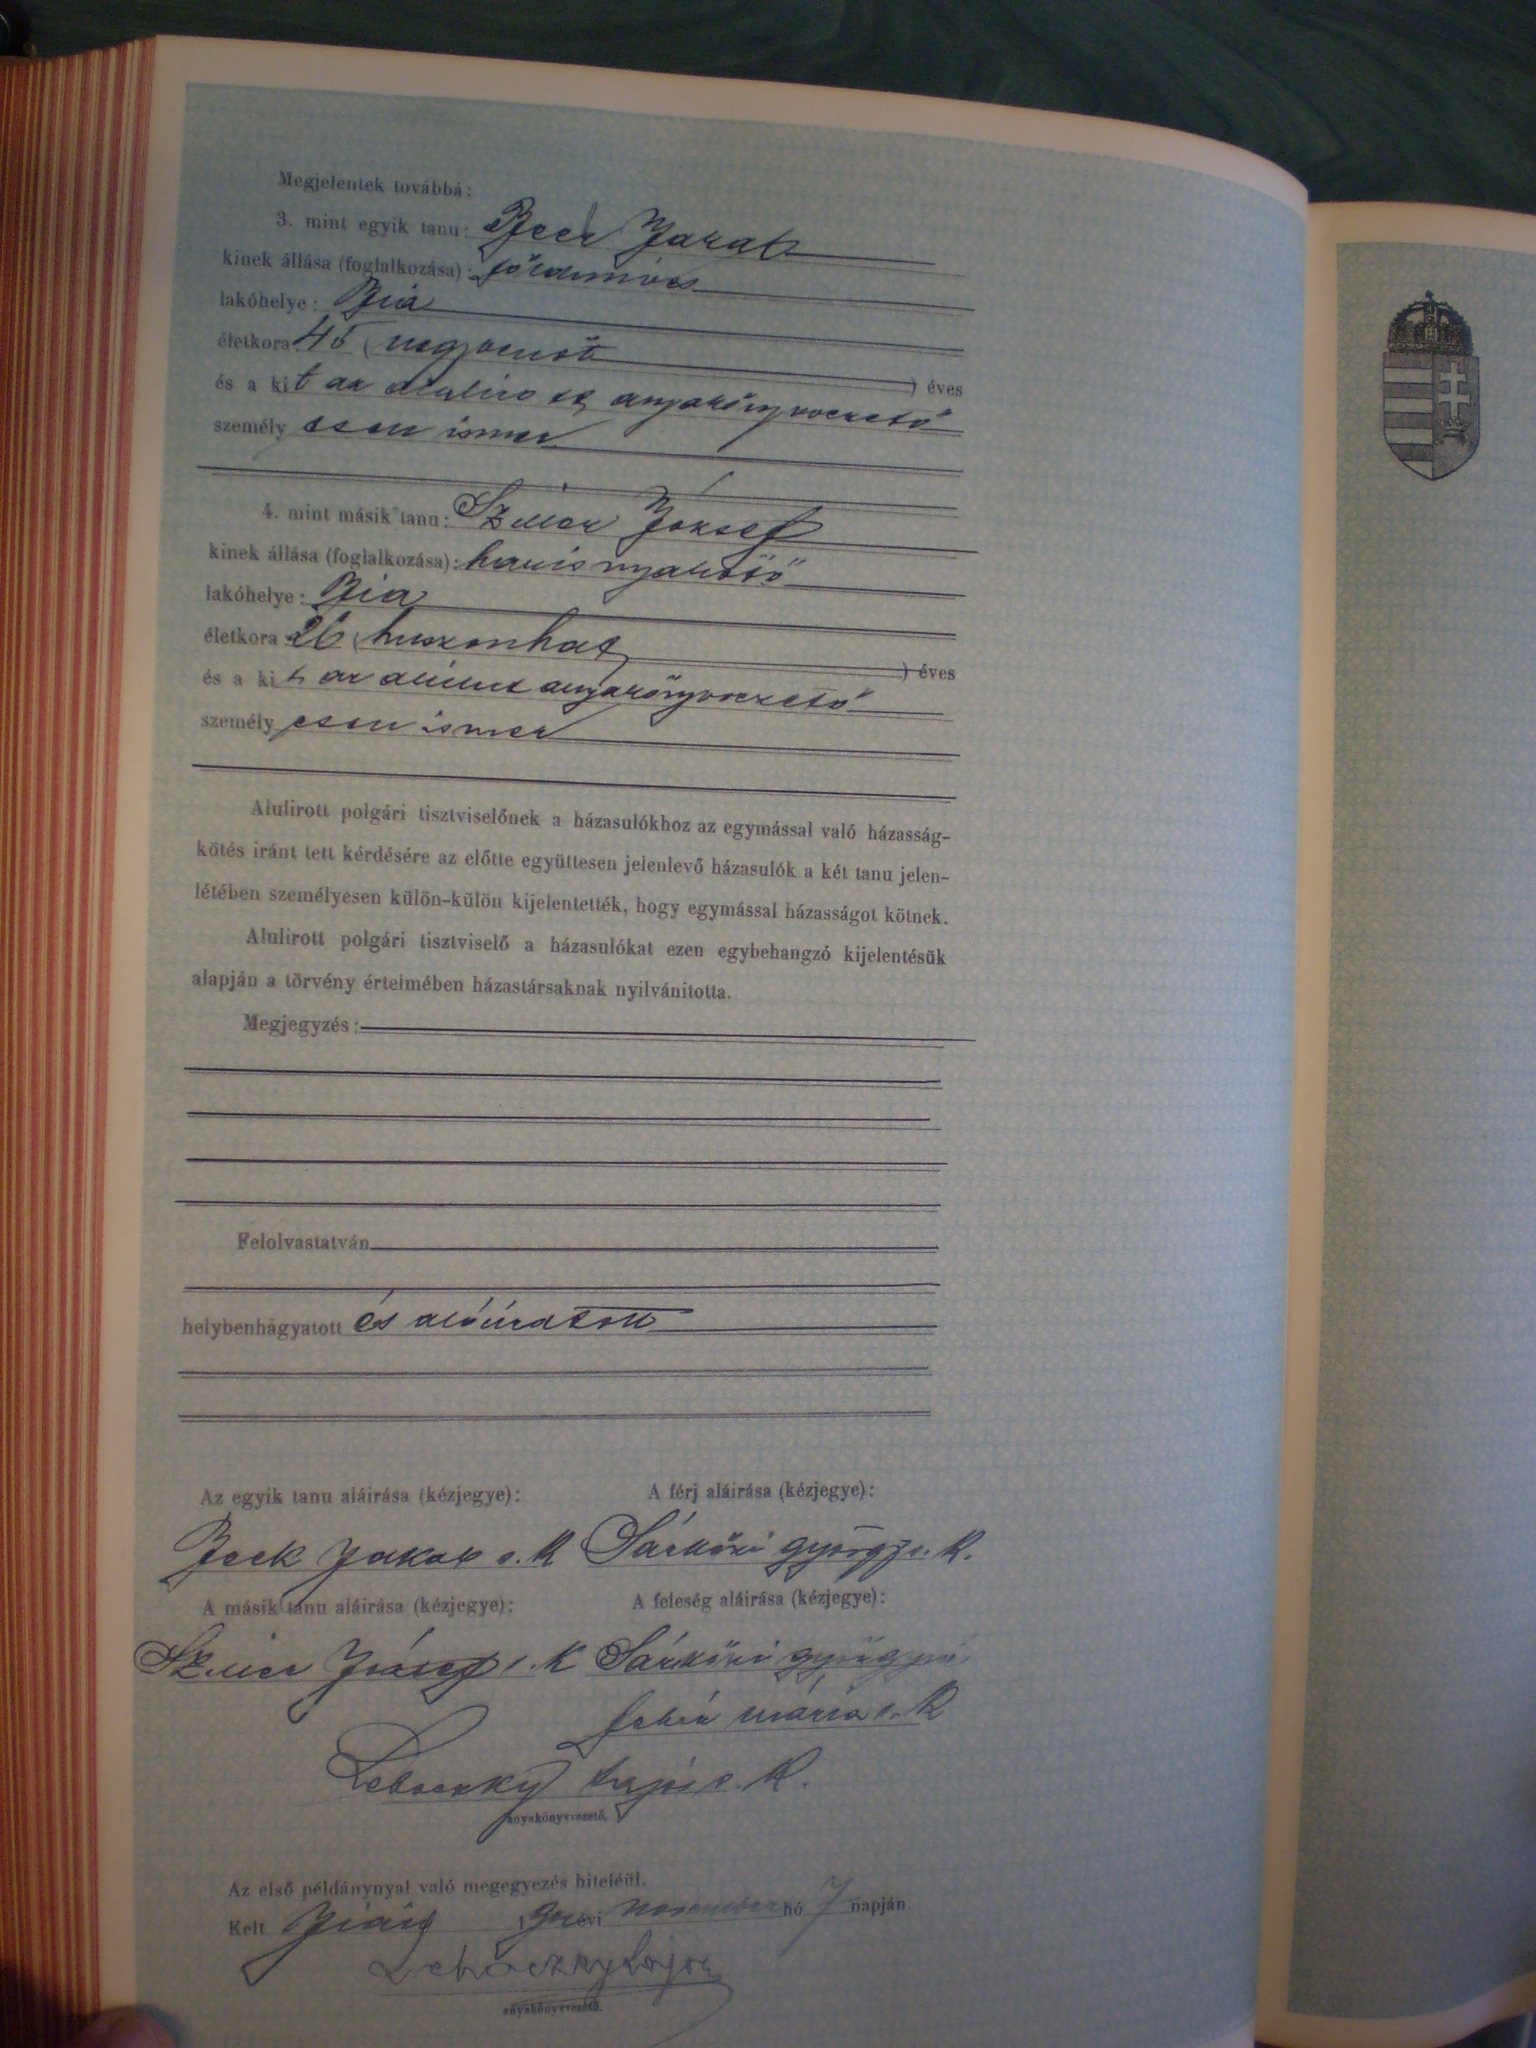 Megjelentek továbbá:
3. mint egyik tanu: Jakab
kinek állása (foglalkozása): földmíves
lakóhelye: Bia
életkora 45 (negyvenöt ) éves
és a kit az alulírott anyakönyvvezető
személyesen ismer
4. mint másik tanu: József
kinek állása (foglalkozása): harisnyakötő
lakóhelye: Bia
életkora 26 (huszonhat ) éves
és a kit az alulírt anyakönyvvezető
személyesen ismer
Alulirott polgári tisztviselőnek a házasulókhoz az egymással való házasság-
kötés iránt tett kérdésére az előtte együttesen jelenlevő házasulók a két tanu jelen-
létében személyesen külön-külön kijelentették, hogy egymással házasságot kötnek.
Alulirott polgári tisztviselő a házasulókat ezen egybehangzó kijelentésük
alapján a törvény értelmében házastársaknak nyilvánitotta.
Megjegyzés:
Felolvastatván
helybenhagyatott és aláíratott
Az egyik tanu aláirása (kézjegye): A férj aláirása (kézjegye):
Jakab s. k Sárközi György s. k.
A másik tanu aláirása (kézjegye): A feleség aláirása (kézjegye):
József s. k Sárközi Györgyné
Fehér Mária s. k
Lehoczky Lajos s. k.
anyakönyvvezető.
Az első példánynyal való megegyezés hiteléül.
Kelt Bián 1 évi november hó 7 napján.
Lehoczky Lajos
anyakönyvvezető.